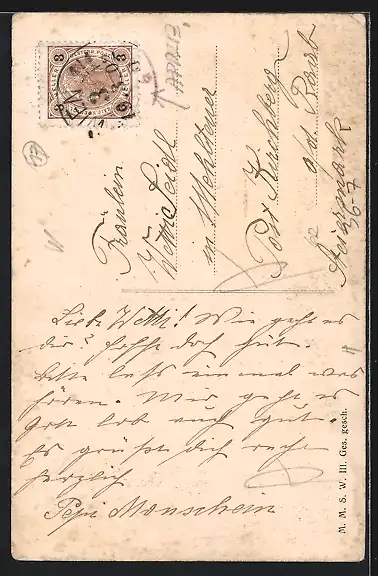 Fräulein
Wetti Seidl
in Mehlteuer
Post Kirchberg
a/d Raab
Steiermark
36-7
62
Liebe Wetti! Wie geht es
dir? hoffe doch gut.
bitte laß einmal was
hören. Mir geht es
Gott lob auch gut.
Es grüßt dich recht
herzlich
Pepi Monschein
M. M. S. W. III. Ges. gesch.
3
3